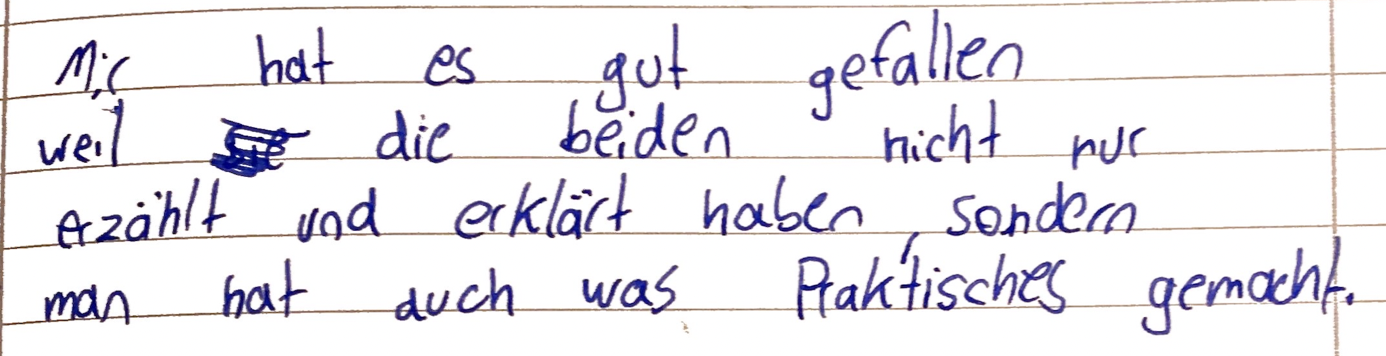 Mir hat es gut gefallen
weil die beiden nicht nur
erzählt und erklärt haben, sondern
man hat auch was Praktisches gemacht.